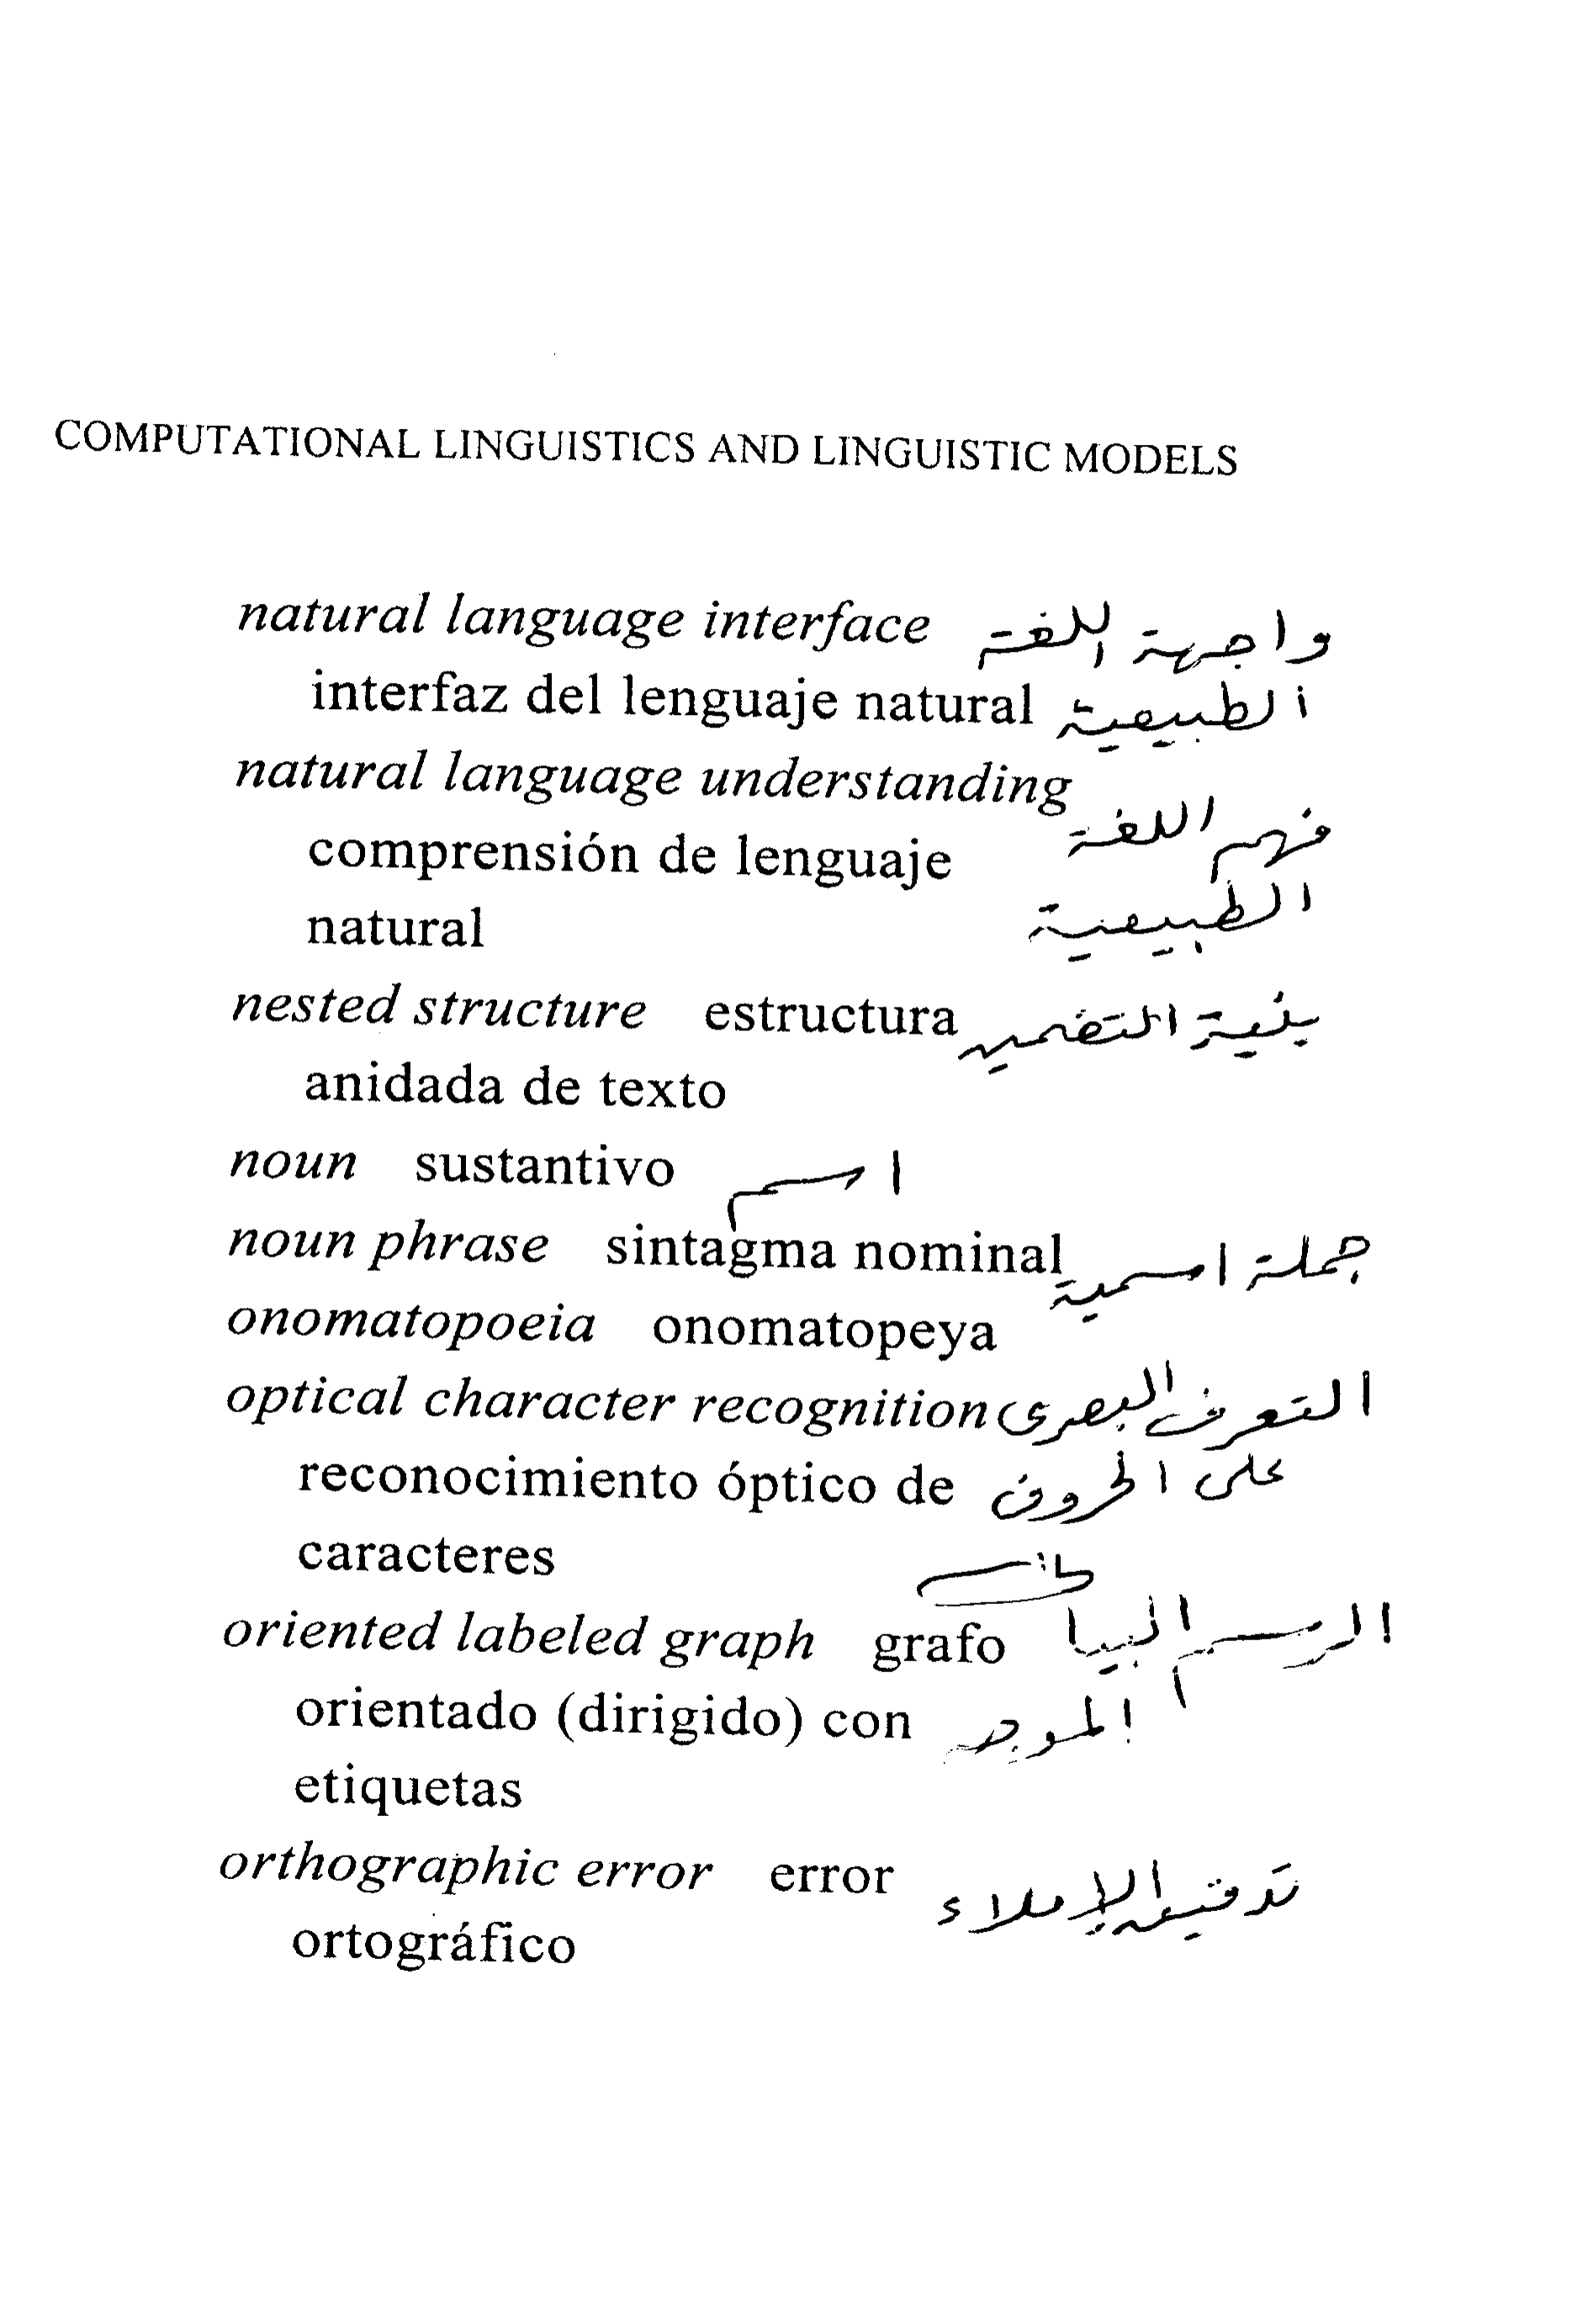 COMPUTATIONAL LINGUISTICS AND LINGUISTIC MODELS
natural language interface واجهة اللغة
interfaz del lenguaje natural الطبيعية
natural language understanding
comprensión de lenguaje فهم اللغة
natural الطبيعية
nested structure estructura بنية التضمين
anidada de texto
noun sustantivo اسم
noun phrase sintagma nominal جملة اسمية
onomatopoeia onomatopeya
optical character recognition التعرف البصرى
reconocimiento óptico de على الحروف
caracteres
oriented labeled graph grafo الرسم البيا
orientado (dirigido) con الموجه
etiquetas
orthographic error error تدقيق الإملاء
ortográfico